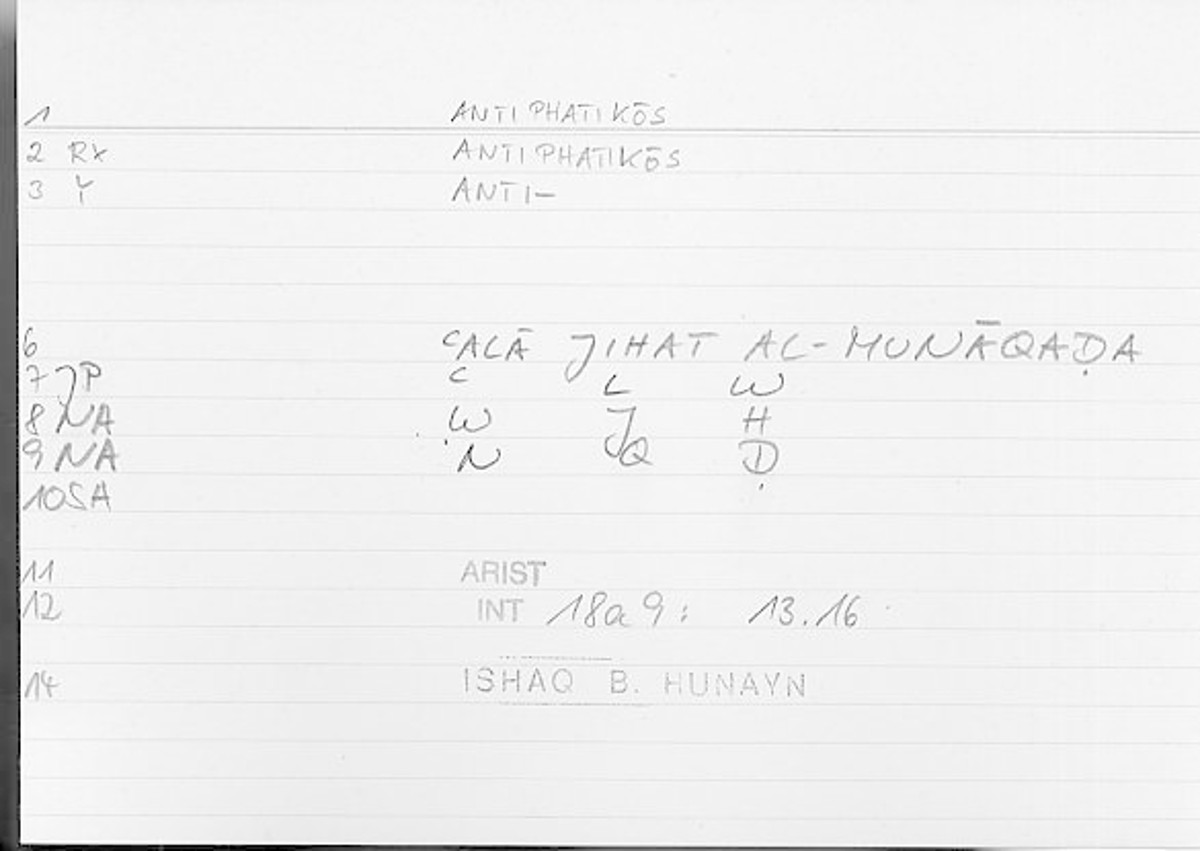 1 ANTIPHATIKŌS
2 RX ANTIPHATIKŌS
3 Y ANTI–
6 ʿALĀ JIHAT AL-MUNĀQAḌA
7 JP ʿ L W
8 NA W J H
9 NA N Q Ḍ
10 SA
11 ARIST
12 INT 18a9: 13.16
14 ISHAQ B. HUNAYN